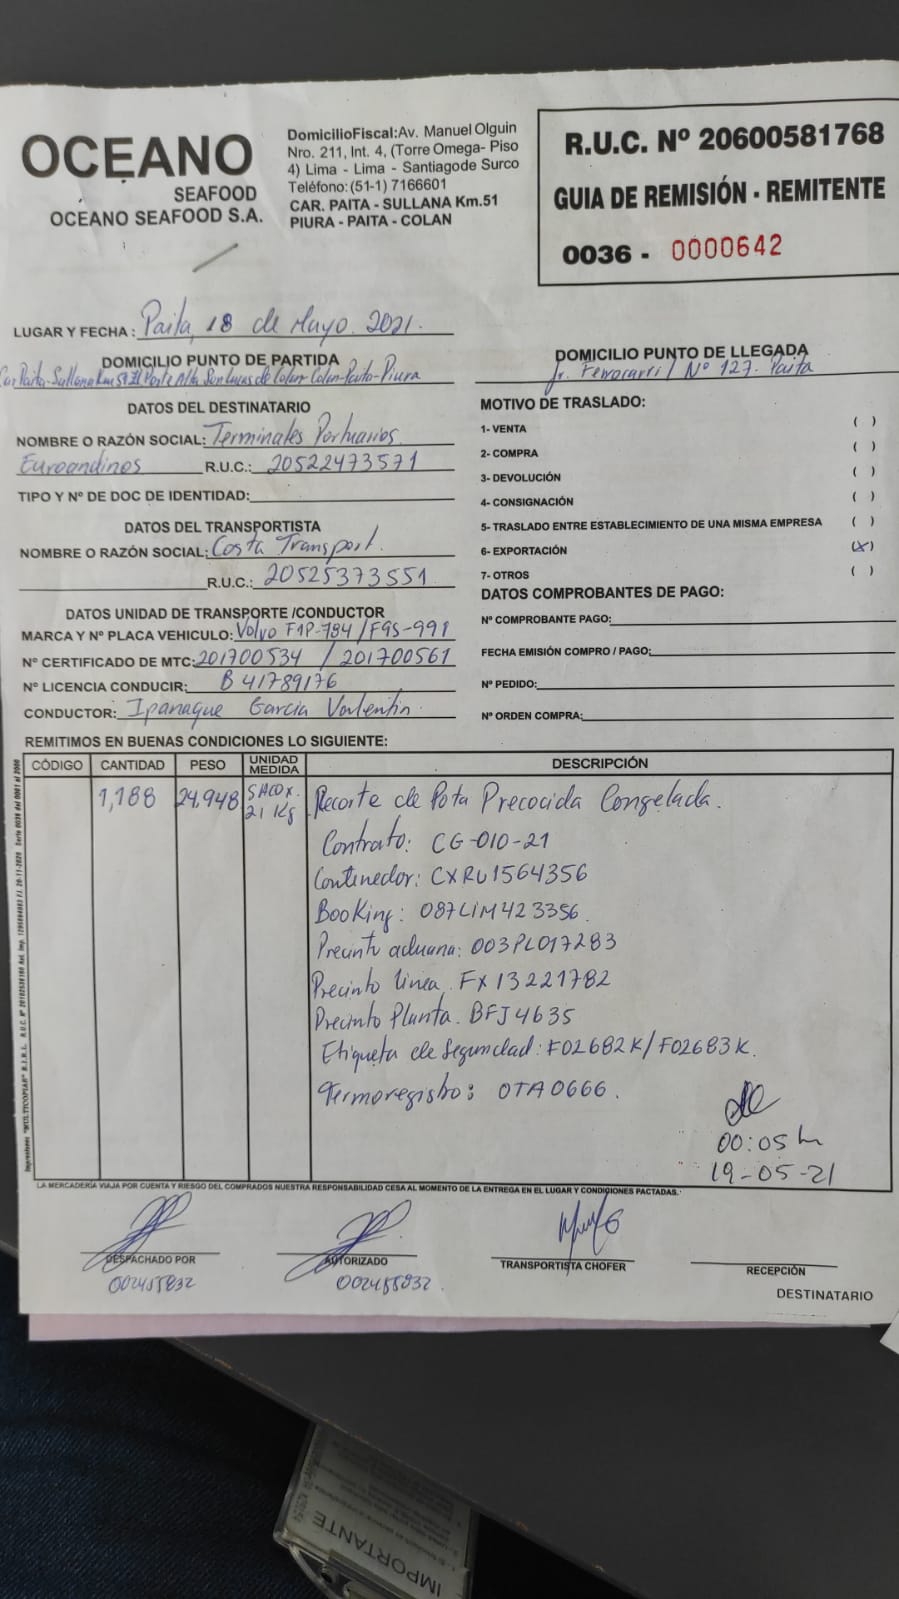 OCEANO
SEAFOOD
OCEANO SEAFOOD S.A.
DomicilioFiscal:Av. Manuel Olguin
Nro. 211, Int. 4, (Torre Omega- Piso
4) Lima - Lima - Santiagode Surco
Teléfono:(51-1) 7166601
CAR. PAITA - SULLANA Km.51
PIURA - PAITA - COLAN
R.U.C. Nº 20600581768
GUIA DE REMISIÓN - REMITENTE
0036 - 0000642
LUGAR Y FECHA : Paita, 18 de Mayo. 2021.
DOMICILIO PUNTO DE PARTIDA
Car Paita-Sullana Km 51 Parte Alta San Lucas de Colan Colan-Paita-Piura
DOMICILIO PUNTO DE LLEGADA
Jr. Ferrocarril Nº 127. Paita
DATOS DEL DESTINATARIO
NOMBRE O RAZÓN SOCIAL: Terminales Portuarios
Euroandinos R.U.C.: 20522473571
TIPO Y Nº DE DOC DE IDENTIDAD:
DATOS DEL TRANSPORTISTA
NOMBRE O RAZÓN SOCIAL: Costa Transport.
R.U.C.: 20525373551
DATOS UNIDAD DE TRANSPORTE /CONDUCTOR
MARCA Y Nº PLACA VEHICULO: Volvo F1P-784 / F9S-991
Nº CERTIFICADO DE MTC: 201700534 / 201700561
Nº LICENCIA CONDUCIR: B 41789176
CONDUCTOR: Ipanaque Garcia Valentin
MOTIVO DE TRASLADO:
1- VENTA ( )
2- COMPRA ( )
3- DEVOLUCIÓN ( )
4- CONSIGNACIÓN ( )
5- TRASLADO ENTRE ESTABLECIMIENTO DE UNA MISMA EMPRESA ( )
6- EXPORTACIÓN (X)
7- OTROS ( )
DATOS COMPROBANTES DE PAGO:
Nº COMPROBANTE PAGO:
FECHA EMISIÓN COMPRO / PAGO:
Nº PEDIDO:
Nº ORDEN COMPRA:
REMITIMOS EN BUENAS CONDICIONES LO SIGUIENTE:
CÓDIGO CANTIDAD PESO UNIDAD MEDIDA DESCRIPCIÓN
1,188 24,948 SACO X. 21 Kg Recorte de Pota Precocida Congelada.
Contrato: CG-010-21
Contenedor: CXRU1564356
Booking: 087LIM423356.
Precinto aduana: 003PL017283
Precinto linea. FX13221782
Precinto Planta. BFJ4635
Etiqueta de Seguridad: F02682K/F02683K.
Termoregistro: OTA0666.
00:05 h
19-05-21
LA MERCADERÍA VIAJA POR CUENTA Y RIESGO DEL COMPRADOS NUESTRA RESPONSABILIDAD CESA AL MOMENTO DE LA ENTREGA EN EL LUGAR Y CONDICIONES PACTADAS.
DESPACHADO POR
002458832
AUTORIZADO
002458832.
TRANSPORTISTA CHOFER
RECEPCIÓN
DESTINATARIO
IMPORTANTE